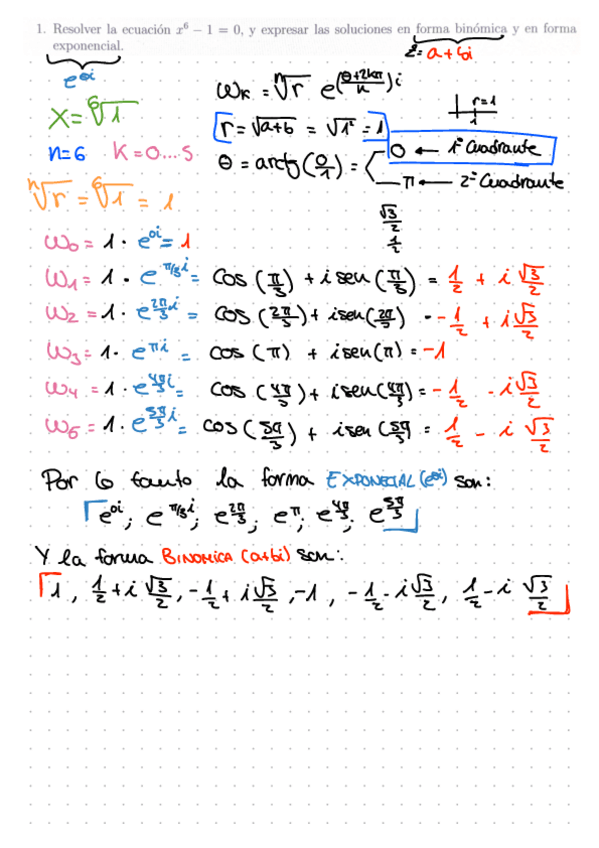 1. Resolver la ecuación x⁶ − 1 = 0, y expresar las soluciones en forma binómica y en forma
exponencial.
z = a+bi
e^{θi}
ω_k = ⁿ√r e^{(θ+2kπ/n)i}
x = ⁶√1
r=1
1
r = √a+b = √1² = 1
n=6 K=0....5
0 ← 1º Cuadrante
θ = arctg(0/1) =
π ← 2º Cuadrante
ⁿ√r = ⁶√1 = 1
√3/2
1/2
ω₀ = 1 · e^{0i} = 1
ω₁ = 1 · e^{π/3 i} = cos(π/3) + i sen(π/3) = 1/2 + i √3/2
ω₂ = 1 · e^{2π/3 i} = cos(2π/3) + i sen(2π/3) = -1/2 + i √3/2
ω₃ = 1 · e^{πi} = cos(π) + i sen(π) = -1
ω₄ = 1 · e^{4π/3 i} = cos(4π/3) + i sen(4π/3) = -1/2 - i √3/2
ω₅ = 1 · e^{5π/3 i} = cos(5π/3) + i sen(5π/3 = 1/2 - i √3/2
Por lo tanto la forma EXPONECIAL (e^{θi}) son:
e^{0i}; e^{π/3 i}; e^{2π/3}; e^{π}; e^{4π/3}; e^{5π/3}
Y la forma BINOMICA (a+bi) son:
1, 1/2 + i √3/2, -1/2 + i √3/2, -1, -1/2 - i √3/2, 1/2 - i √3/2